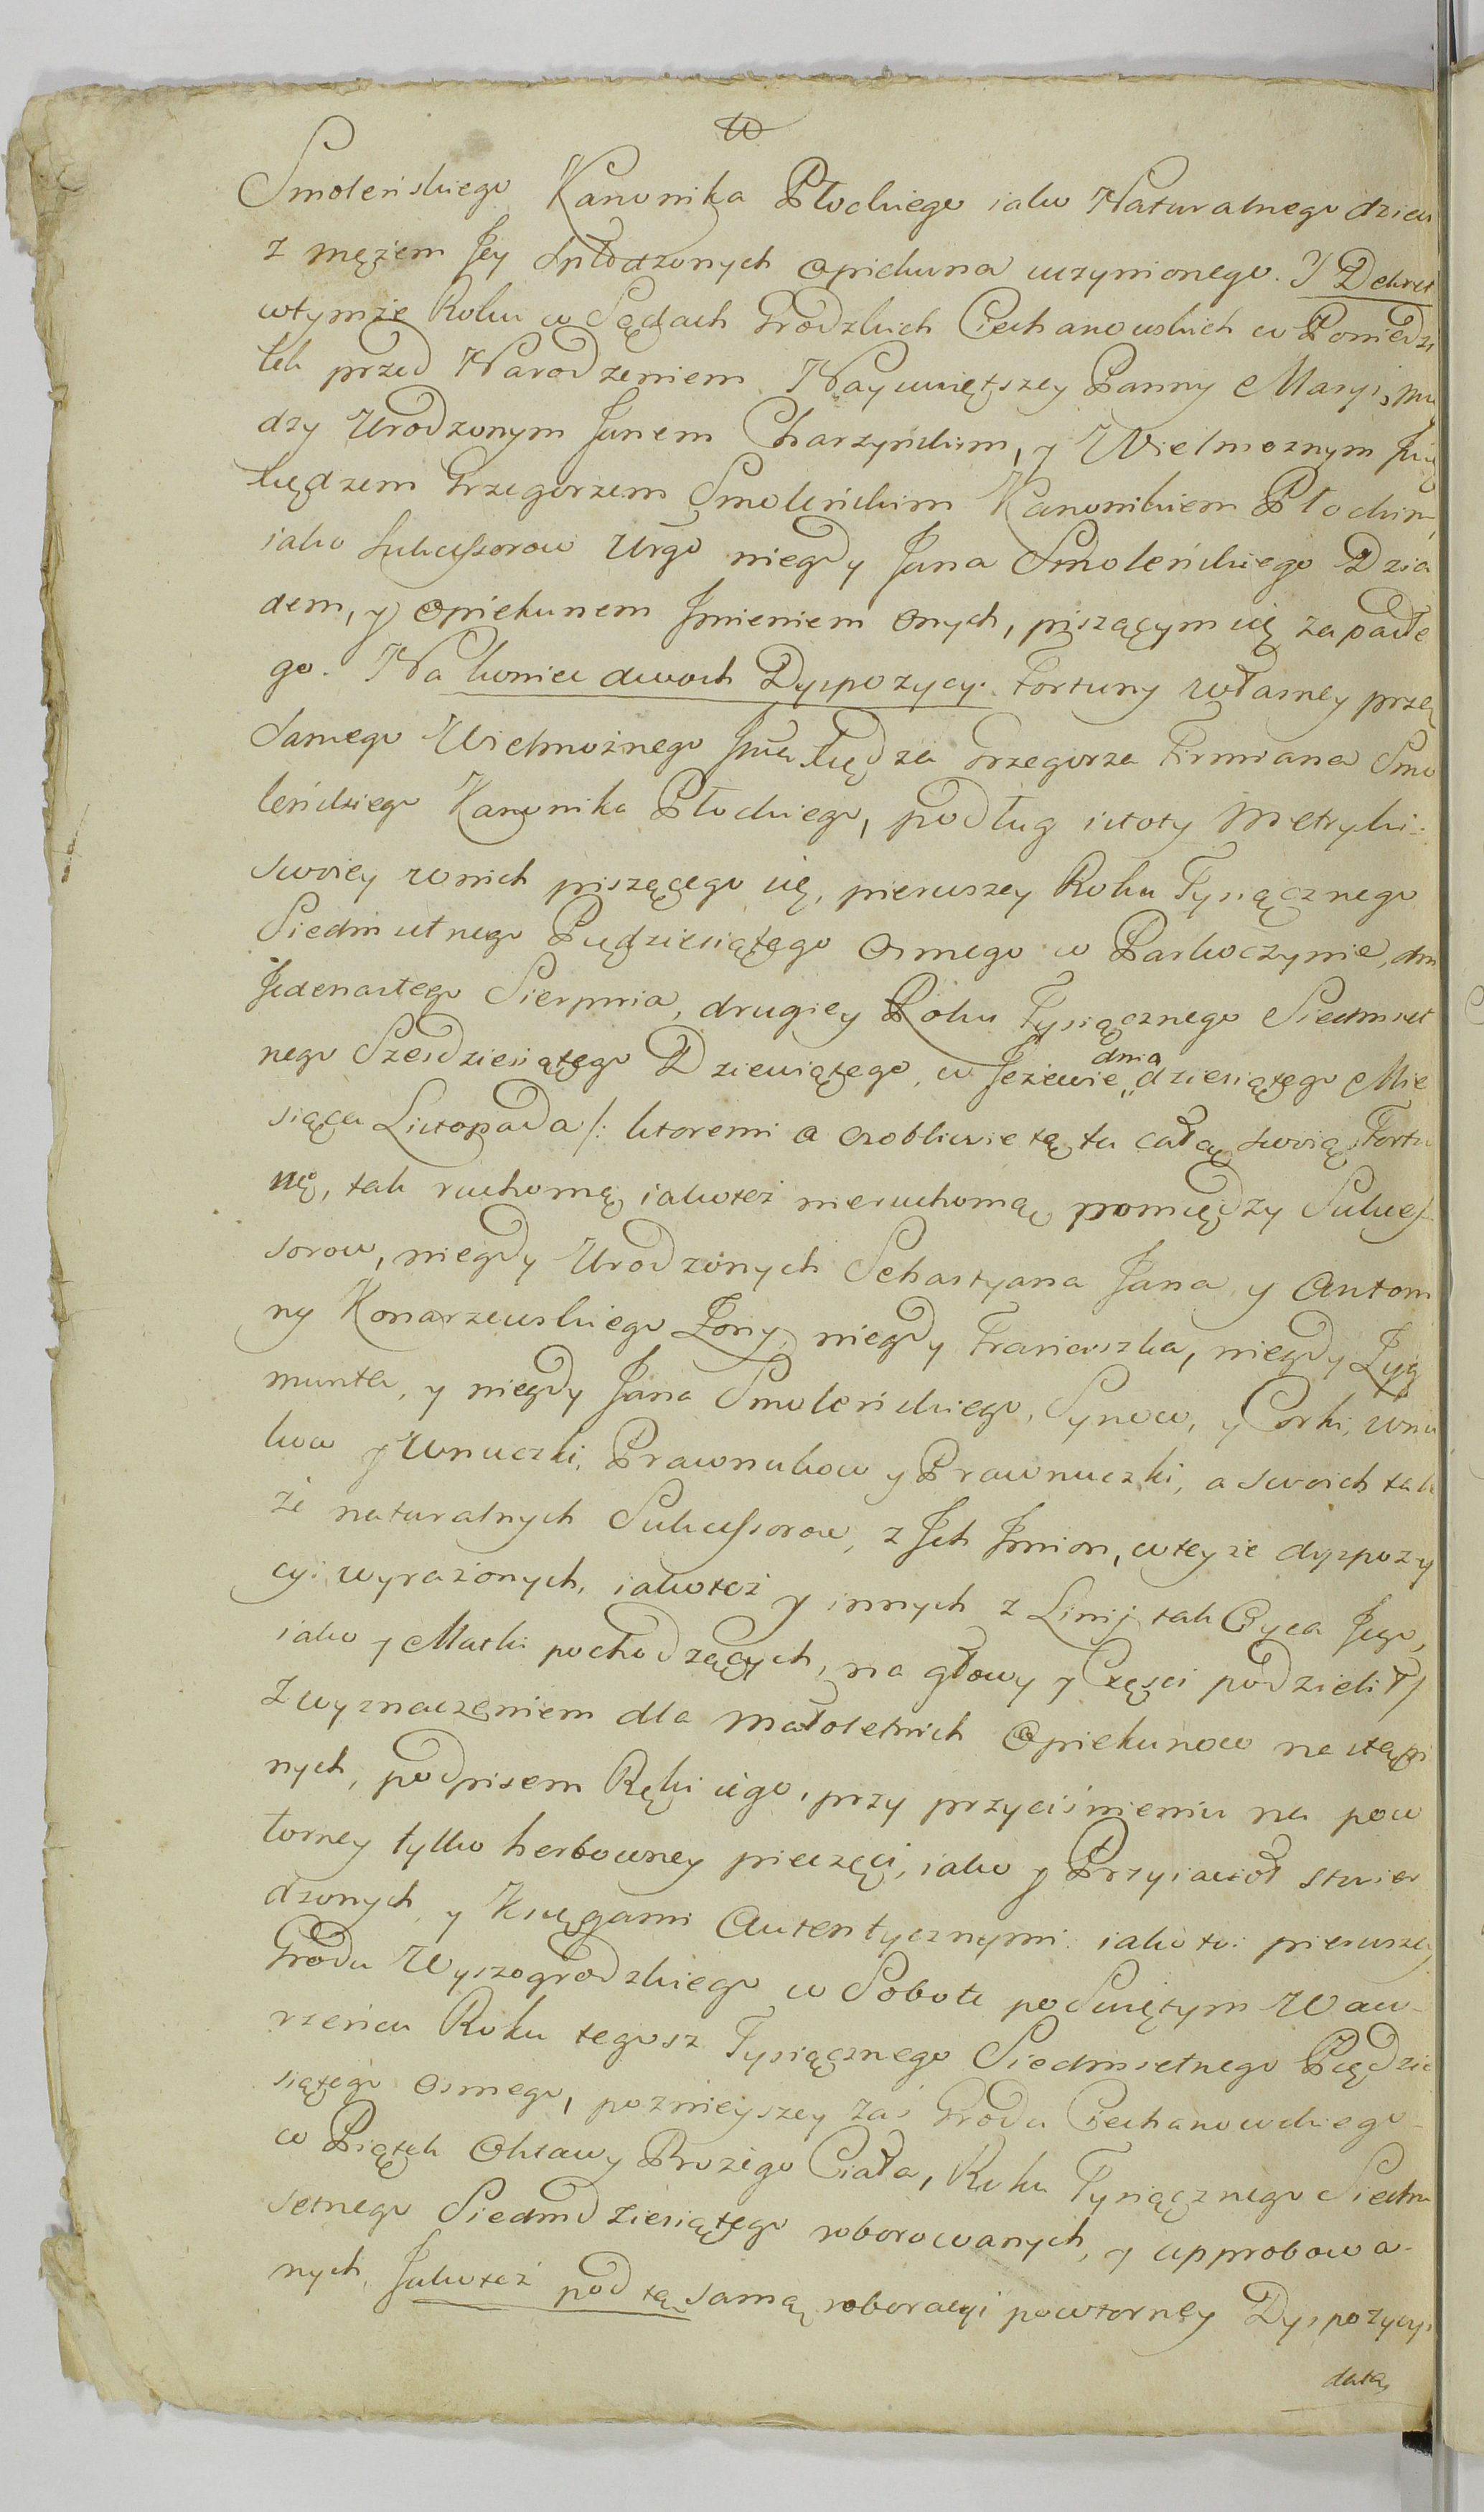 w
Smoleńskiego Kanonika Płockiego iako Naturalnego dziec
z mężem Jey Spłodzonych opiekuna uczynionego. I Dekret
wtymże Roku w Sądach Grodzkich Ciechanowskich w Poniedzi
łek przed Narodzeniem Nayswiętszey Panny Maryi, mię
dzy Urodzonym Janem Charzyńskim, y Wielmożnym Jmć
księdzem Grzegorzem Smoleńskim Kanonikiem Płockim,
iako Sukcessorow Urgo niegdy Jana Smoleńskiego Dzia
dem, y opiekunem Jmieniem onych, piszącym się zapadłe
go. Na koniec dwoch Dyspozycyi Fortuny własney przez
Samego Wielmożnego Jmci księdza Grzegorza Firmiana Smo
leńskiego Kanonika Płockiego, podług istoty Metryki
swoiey wnich piszącego się, pierwszey Roku Tysiącznego
Siedmsetnego Pięćdziesiątego osmego w Parkoczynie, dnia
Jedenastego Sierpnia, drugiey Roku Tysiącznego Siedmset
nego Szesdziesiątego Dziewiątego, w Jeżewie dnia dziesiątego Mie
siąca Listopada /: ktoremi a osobliwie tą tu całą swoią Fortu
nę, tak ruchomą iakoteż nieruchomą pomiędzy Sukces
sorow, niegdy Urodzonych Sebastyana Jana y Antoni
ny Konarzewskiego Żony, niegdy Franciszka, niegdy Zyg
munta, y niegdy Jana Smoleńskiego, Synow, y Corki, wnu
kow y Wnuczki, Prawnukow y Prawnuczki, a swoich tak
że naturalnych Sukcessorow, z Jch Jmion, wteyże dyspozy
cyi wyrażonych, iakoteż y innych z Linij tak Oyca Jego,
iako y Matki pochodzących, na głowy y Częsci podzielił /
Z wyznaczeniem dla małoletnich Opiekunow nastąpi
nych, podpisem Ręki iego, przy przyciśnieniu na pow
torney tylko herbowney pieczęci, iako y Przyiacioł stwier
dzonych y Księgami Autentycznymi iako to: pierwszey
Grodu Wyszogrodzkiego w Sobotę po Swiętym Waw-
rzeńcu Roku tegosz Tysiącznego Siedmsetnego Pięćdzie
siątego osmego, poznieyszey zaś Grodu Ciechanowskiego-
w Piątek Oktawy Bożego Ciała, Roku Tysiącznego Siedm
setnego Siedmdziesiątego roborowanych, y approbowa-
nych, Jakoteż pod tą samą roboracyi powtorney Dyspozycyi
datą,